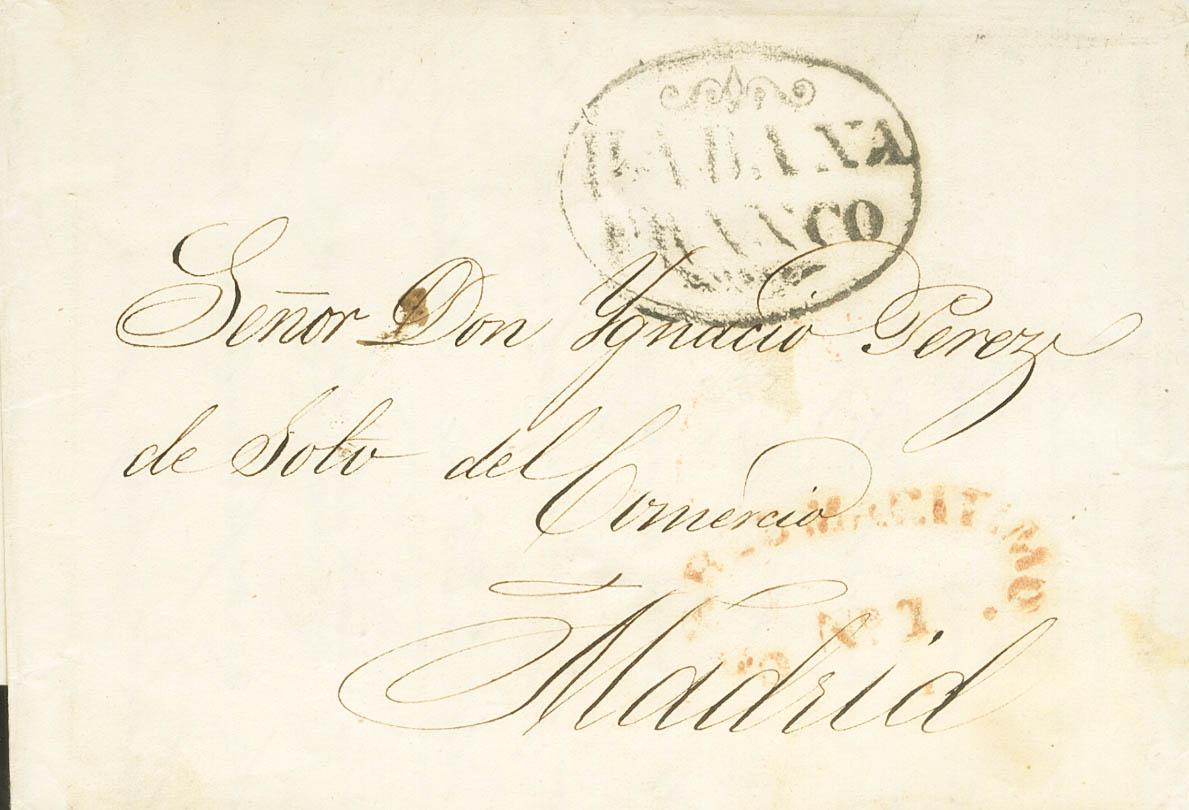 HABANA
FRANCO
Señor Don Ygnacio Perez
de Soto del Comercio
Nº 1
Madrid